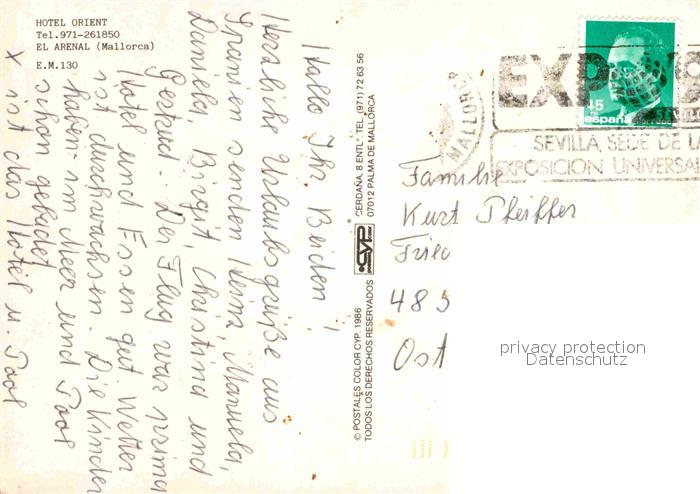 HOTEL ORIENT
Tel.971-261850
EL ARENAL (Mallorca)
E.M.130
Hallo Ihr Beiden!
Herzliche Urlaubsgrüße aus
Spanien senden Heinz, Manuela,
Daniela, Birgit, Christina und
Gertrud. Der Flug war prima
Hotel und Essen gut. Wetter
ist durchwachsen. Die Kinder
haben im Meer und Pool
schon gebadet.
x ist das Hotel u. Pool
© POSTALES COLOR CYP, 1986
TODOS LOS DERECHOS RESERVADOS
CYP
CERDAÑA, 8 ENTL° TEL. (971) 72 63 56
07012 PALMA DE MALLORCA
MALLORCA
45
españa
EXPO 9
SEVILLA, SEDE DE LA
EXPOSICION UNIVERSA
Familie
Kurt Pfeiffer
Fried
485
Ost
privacy protection
Datenschutz